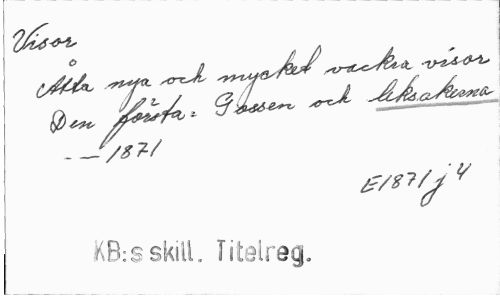 Visor
Åtta nya och mycket vackra visor
Den första: Gossen och leksakerna
- — 1871
E1871 j 4
KB:s skill. Titelreg.